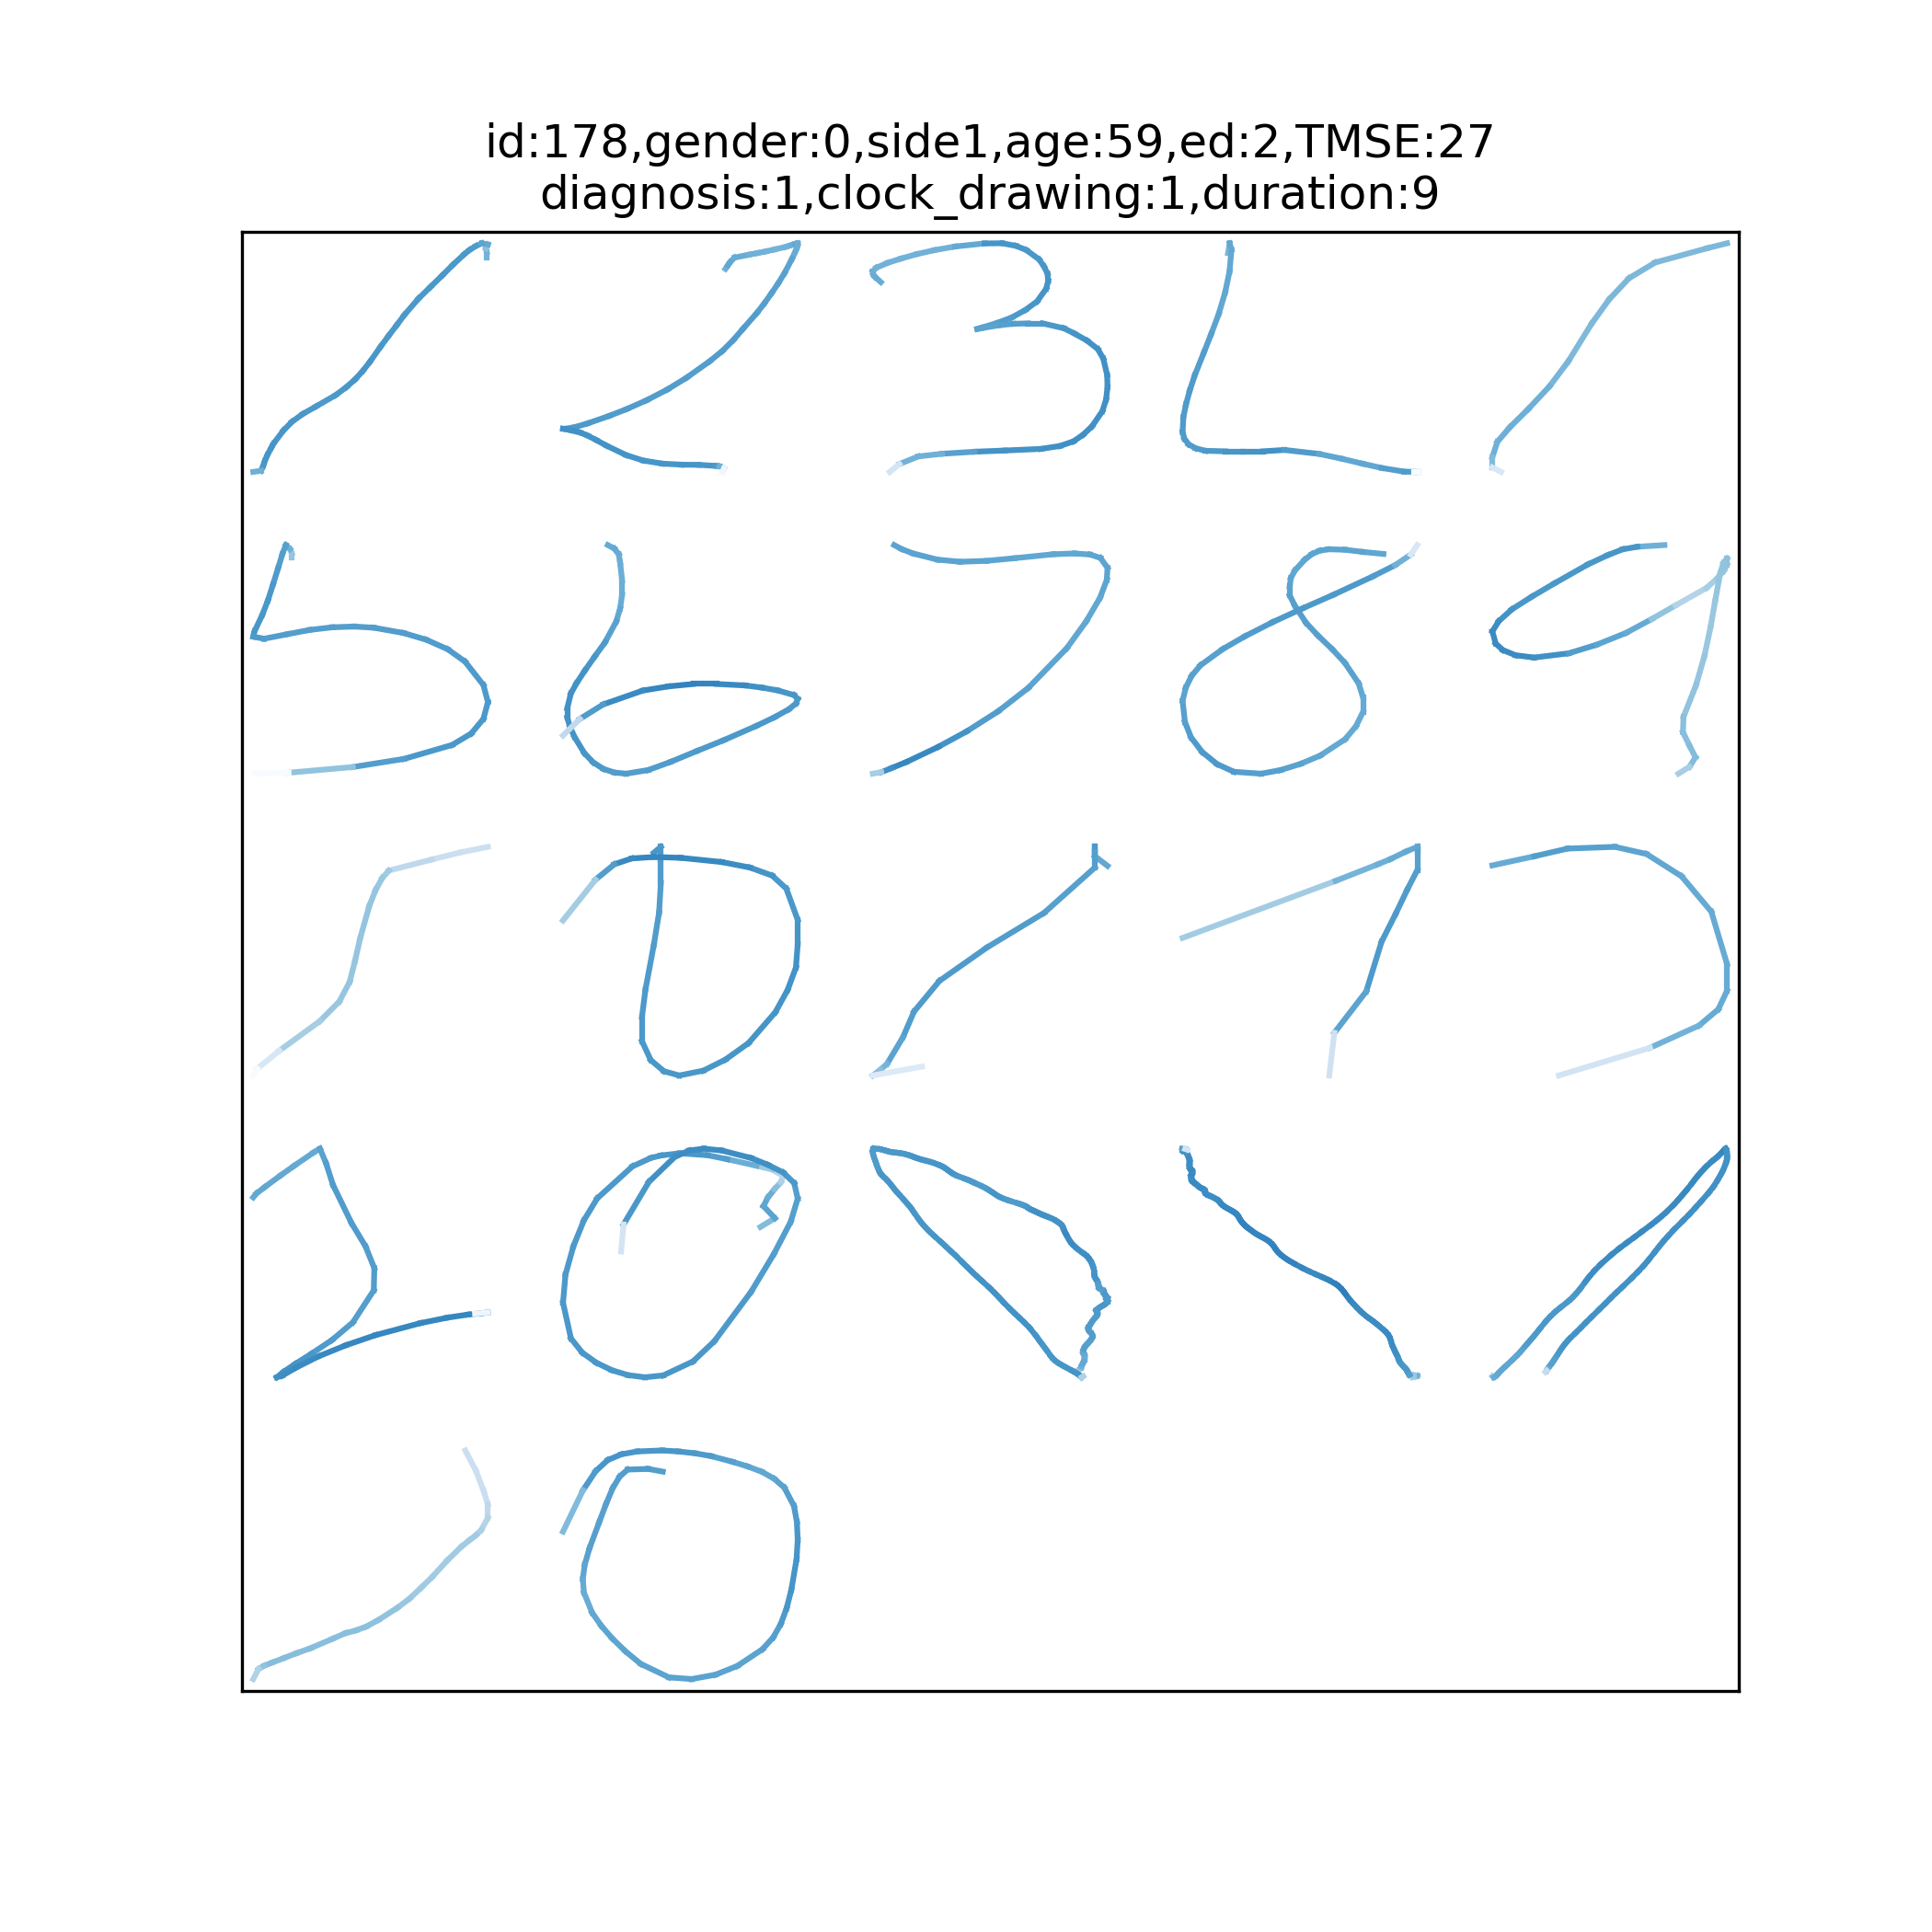 id:178,gender:0,side1,age:59,ed:2,TMSE:27
diagnosis:1,clock_drawing:1,duration:9
1 2 3
5 6 7 8 9
1 0 1 1
2